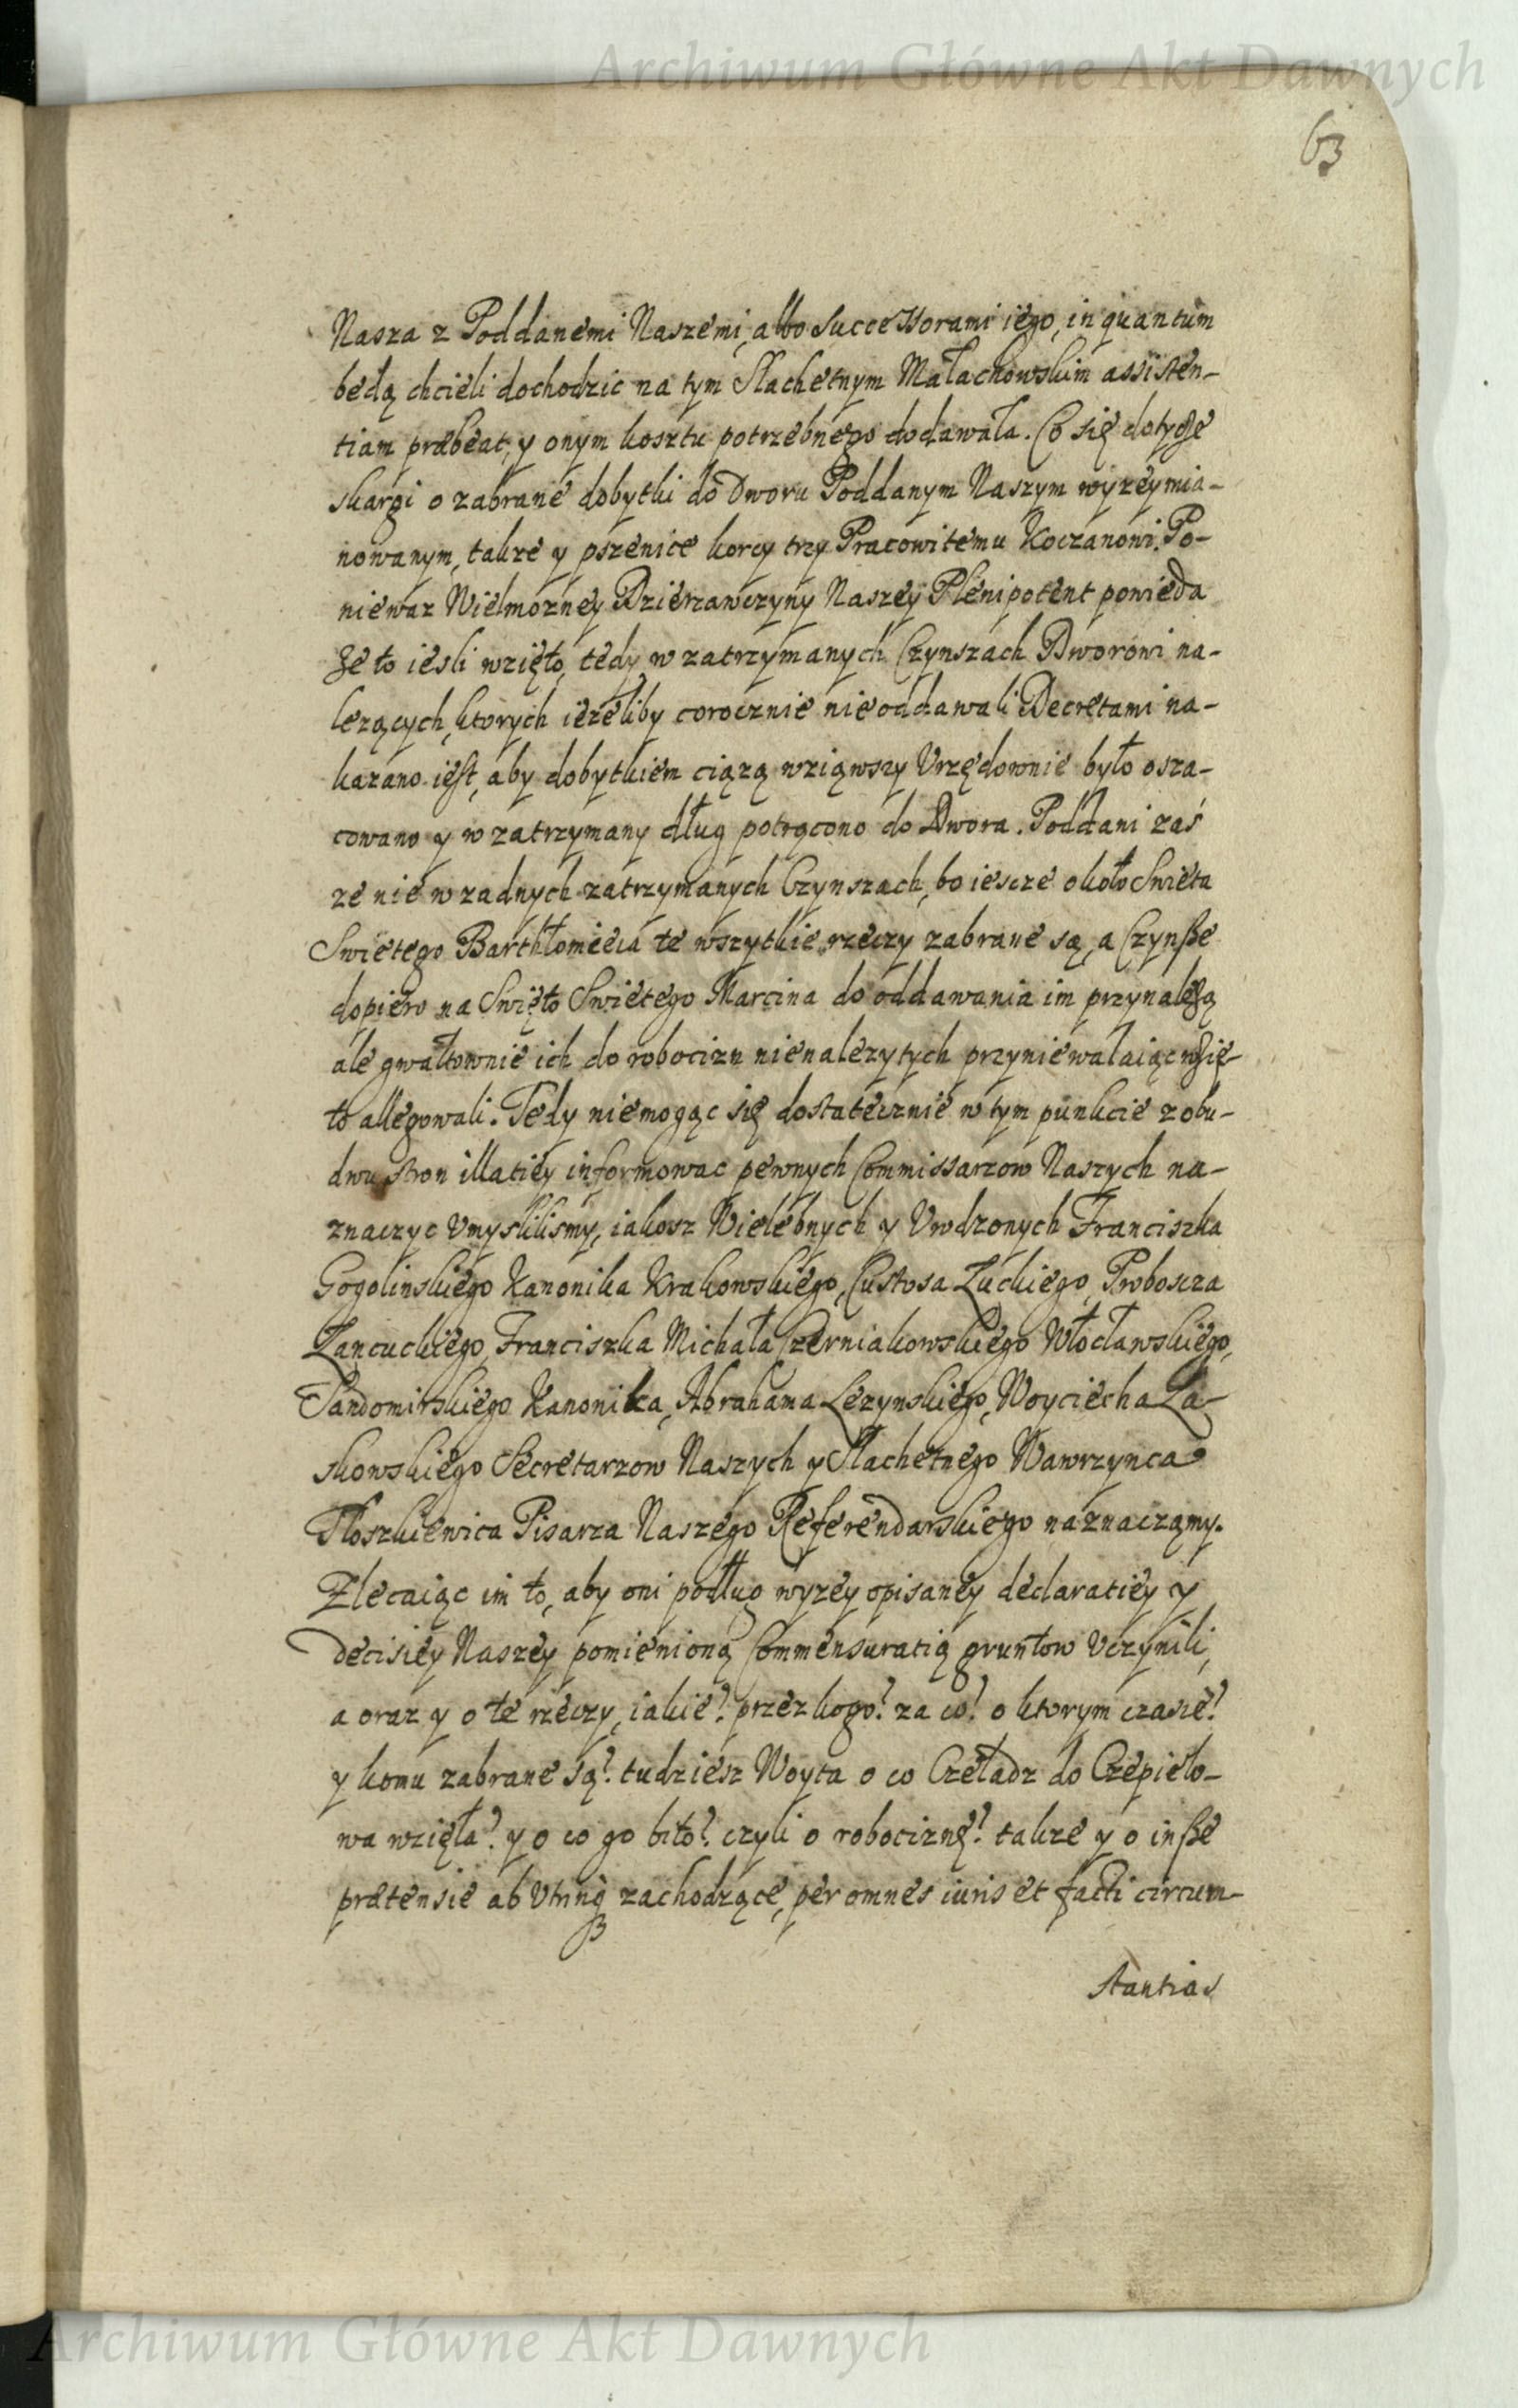 Archiwum Główne Akt Dawnych
63
Nasza z Poddanemi Naszemi, albo Successorami iego, in quantum
będą chcieli dochodzic na tym Slachetnym Małachowskim assisten-
tiam præbeat, y onym kosztu potrzebnego dodawała. Co się dotycze
skargi o zabrane dobytki do Dworu Poddanym Naszym wyzey mia-
nowanym, takze y pszenice korcy trzy Pracowitemu Koczanowi. Po-
niewaz Wielmozney Dzierzawczyny Naszey Plenipotent powieda
Ze to iesli wzięto, tedy w zatrzymanych Czynszach Dworowi na-
lezących, ktorych iezeliby corocznie nieoddawali Decretami na-
kazano iest, aby dobytkiem ciązą wziąwszy Vrzędownie było osza-
cowano y w zatrzymany dług potrącono do Dwora. Poddani zaś
ze nie w zadnych zatrzymanych Czynszach, bo iescze około Swieta
Swietego Barthłomieia te wszytkie rzeczy zabrane są, a Czynsze
dopiero na Swięto Swietego Marcina do oddawania im przynalezą
ale gwałtownie ich do robocizn nienalezytych przyniewalaiąc wzię-
to allegowali. Tedy niemogąc się dostatecznie w tym punkcie z obu-
dwu stron illatiey informowac pewnych Commissarzow Naszych na-
znaczyc Vmyslilismy, iakosz Wielebnych y Vrodzonych Franciszka
Gogolinskiego Kanonika Krakowskiego, Custosa Łuckiego, Probosza
Łancuckiego, Franciszka Michała Czerniakowskiego Włocławskiego,
Sandomirskiego Kanonika, Abrahama Lezynskiego, Woyciecha La-
skowskiego Secretarzow Naszych y Slachetnego Wawrzynca
Floszkiewica Pisarza Naszego Referendarskiego naznaczamy.
Zlecaiąc im to, aby oni podług wyzey opisaney declaratiey y
decisiey Naszey pomienioną Commensuratią gruntow Vczynili,
a oraz y o te rzeczy, iakie? przez kogo? za co? o ktorym czasie?
y komu zabrane są? tudziesz Woyta o co Czeladz do Czepielo-
wa wzięła? y o co go bito? czyli o robociznę? takze y o insze
prætensie ab Vtrinq zachodzące, per omnes iuris et facti circum-
stantias
Archiwum Główne Akt Dawnych